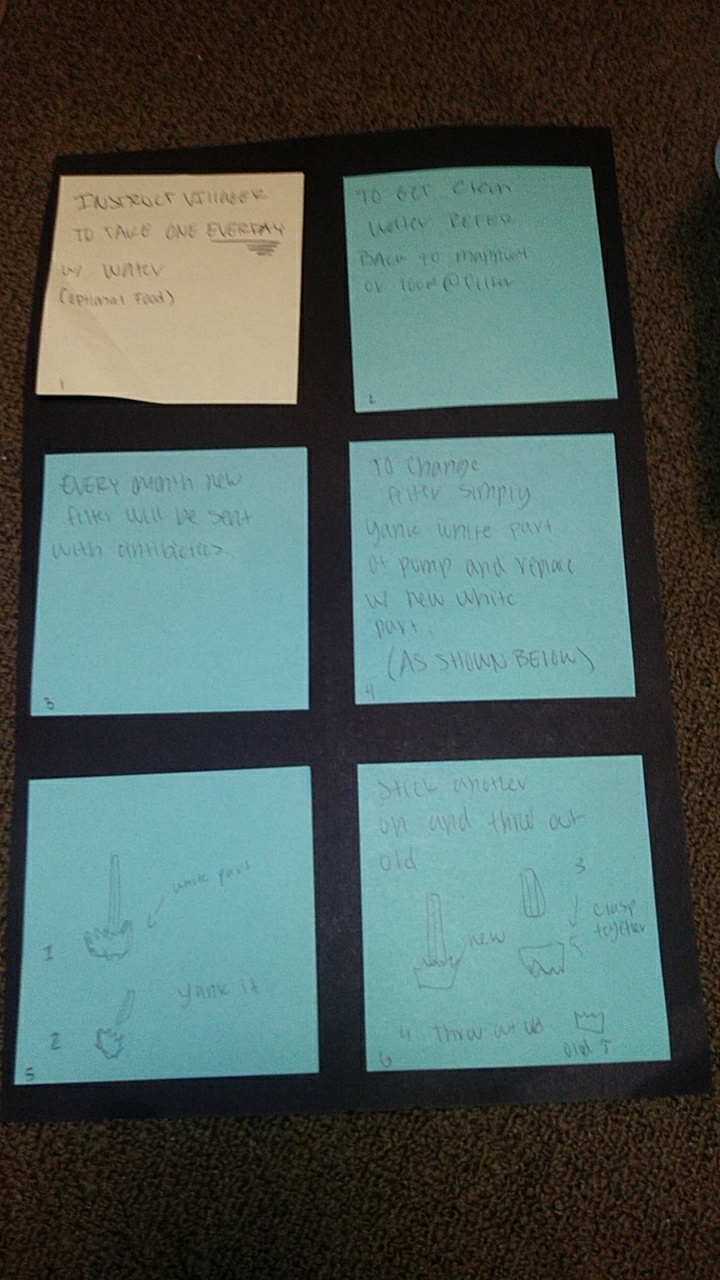 INSTRUCT VILLAGER
TO TAKE ONE EVERYDAY
w/ water
(optional Food)
1
TO GET Clean
water REFER
BACK TO
or look @ filter
2
EVERY month new
filter will be sent
with antibiotics.
3
TO Change
filter simply
yank white part
of pump and replace
w/ new white
part.
(AS SHOWN BELOW)
4
white part
1
yank it
2
5
Stick another
on and throw out
old
3
clasp
together
new
4 Throw out old
old ↑
6